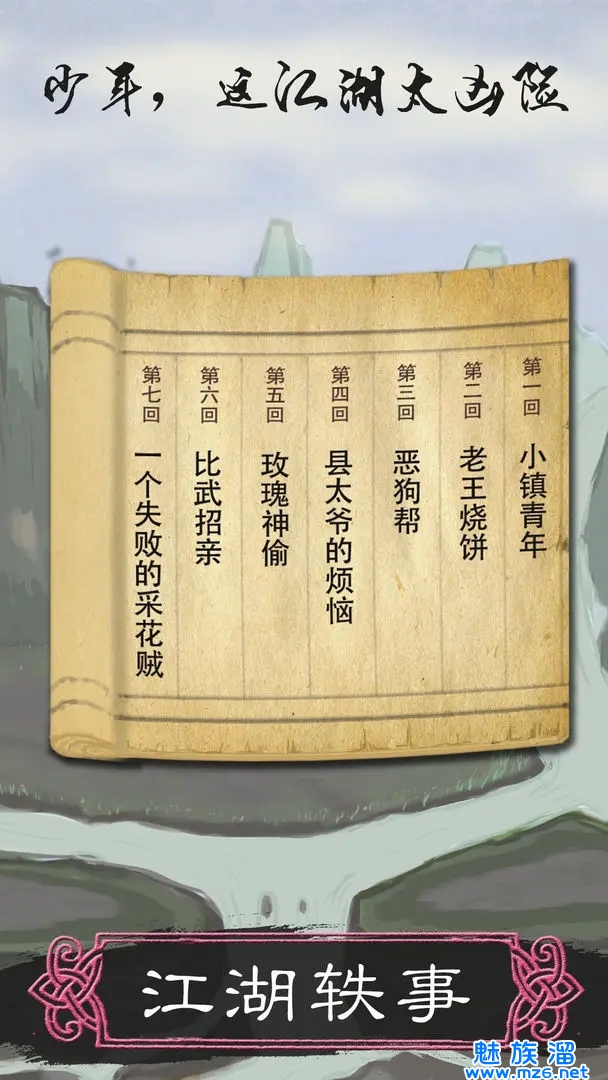 少年，这江湖太凶险
第一回 小镇青年
第二回 老王烧饼
第三回 恶狗帮
第四回 县太爷的烦恼
第五回 玫瑰神偷
第六回 比武招亲
第七回 一个失败的采花贼
江湖轶事
魅族溜
www.mz6.net